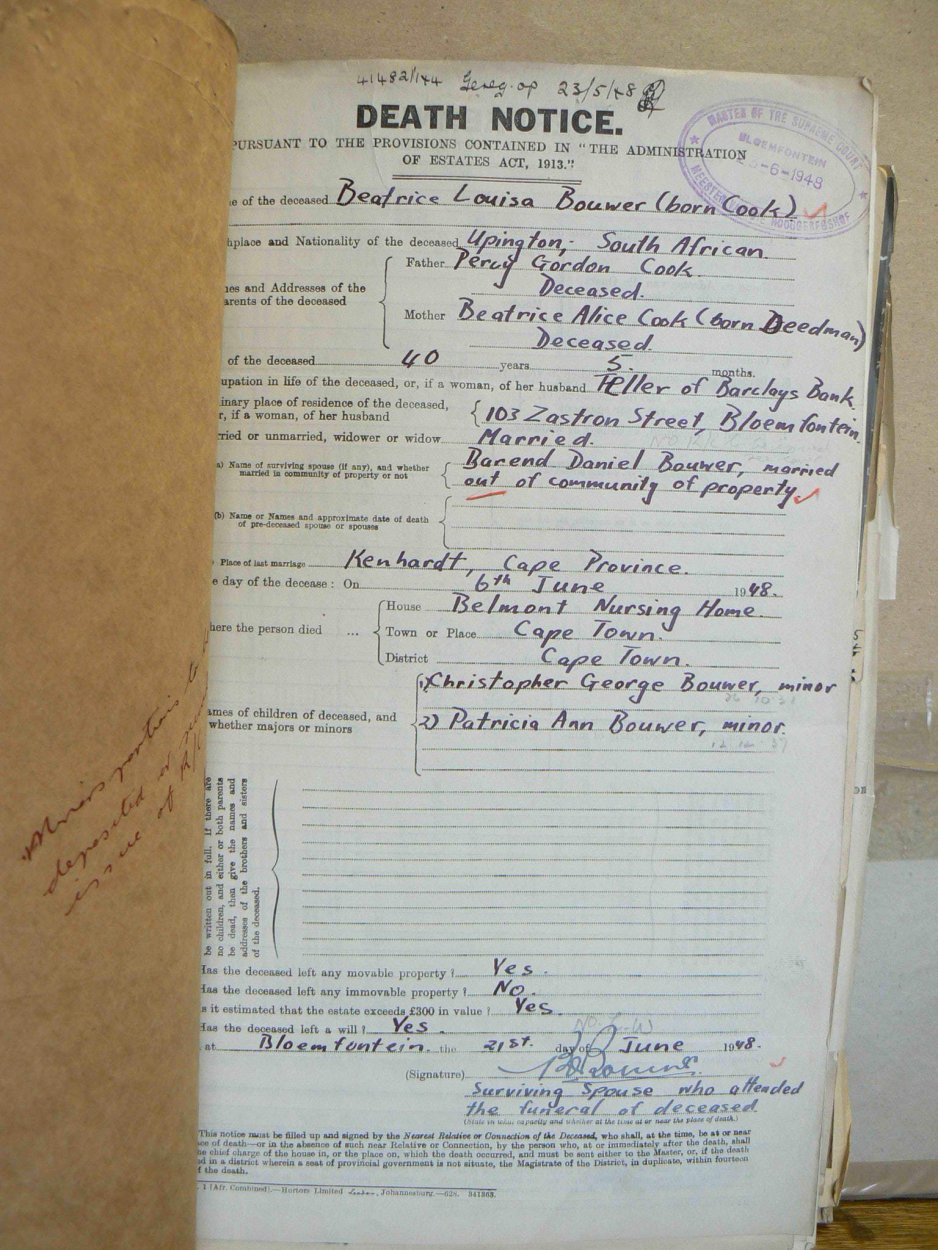 41482/144 Gereg. op 23/5/48
DEATH NOTICE.
PURSUANT TO THE PROVISIONS CONTAINED IN "THE ADMINISTRATION
OF ESTATES ACT, 1913."
MASTER OF THE SUPREME COURT
BLOEMFONTEIN
-6-1948
e of the deceased Beatrice Louisa Bouwer (born Cook)
hplace and Nationality of the deceased Upington, South African.
Father Percy Gordon Cook.
Deceased.
mes and Addresses of the
arents of the deceased
Mother Beatrice Alice Cook (born Deedman)
Deceased
of the deceased 40 years 5. months.
upation in life of the deceased, or, if a woman, of her husband Teller of Barclays Bank
inary place of residence of the deceased,
r, if a woman, of her husband 103 Zastron Street, Bloemfontein.
ried or unmarried, widower or widow Married.
a) Name of surviving spouse (if any), and whether
married in community of property or not
Barend Daniel Bouwer, married
out of community of property
(b) Name or Names and approximate date of death
of pre-deceased spouse or spouses
Place of last marriage Kenhardt, Cape Province.
e day of the decease: On 6th June 1948.
House Belmont Nursing Home.
here the person died ... Town or Place Cape Town.
District Cape Town.
1) Christopher George Bouwer, minor
ames of children of deceased, and
whether majors or minors
2) Patricia Ann Bouwer, minor.
be written out in full. If there are
no children, and either or both parents
be dead, then give the names and
addresses of the brothers and sisters
of the deceased.
Has the deceased left any movable property? Yes.
Has the deceased left any immovable property? No.
s it estimated that the estate exceeds £300 in value? Yes.
Has the deceased left a will? Yes.
at Bloemfontein. the 21st. day of June 1948.
(Signature)
Surviving Spouse who attended
the funeral of deceased
(State in what capacity and whether at the time at or near the place of death.)
This notice must be filled up and signed by the Nearest Relative or Connection of the Deceased, who shall, at the time, be at or near
ce of death—or in the absence of such near Relative or Connection, by the person who, at or immediately after the death, shall
he chief charge of the house in, or the place on, which the death occurred, and must be sent either to the Master, or, if the death
ed in a district wherein a seat of provincial government is not situate, the Magistrate of the District, in duplicate, within fourteen
f the death.
1 (Afr. Combined).—Hortors Limited Johannesburg.—628. 341363.
deposited